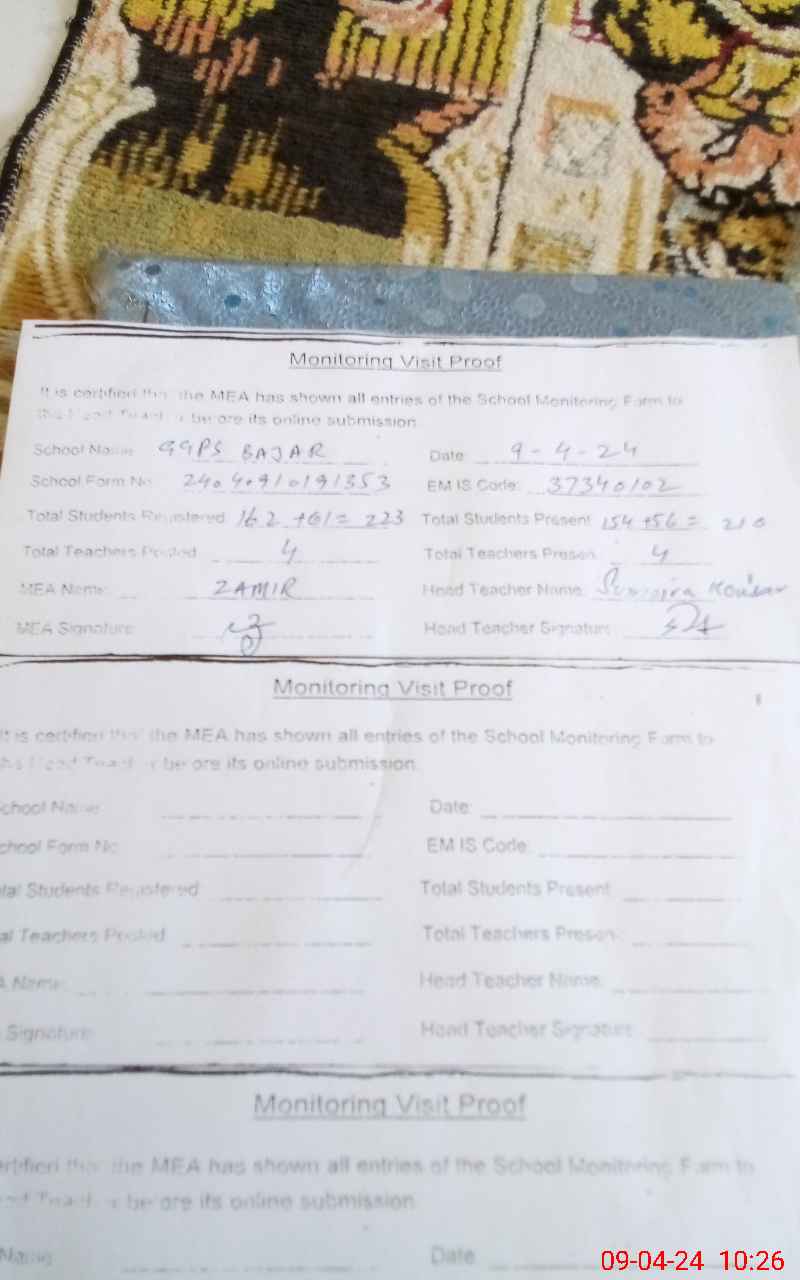 Monitoring Visit Proof
It is certified that the MEA has shown all entries of the School Monitoring Form to
the Head Teacher before its online submission.
School Name GGPS BAJAR Date 9-4-24
School Form No 24040910191353 EMIS Code: 37340102
Total Students Registered 162 +61= 223 Total Students Present 154 +56= 210
Total Teachers Posted 4 Total Teachers Present 4
MEA Name: ZAMIR Head Teacher Name: Sumaira Kousar
MEA Signature Head Teacher Signature
Monitoring Visit Proof
It is certified that the MEA has shown all entries of the School Monitoring Form to
Head Teacher before its online submission.
School Name Date
School Form No EMIS Code
Total Students Registered Total Students Present
Teachers Posted Total Teachers Present
Name: Head Teacher Name:
Signature Head Teacher Signature
Monitoring Visit Proof
that the MEA has shown all entries of the School Monitoring Form to
before its online submission
Name Date
09-04-24 10:26